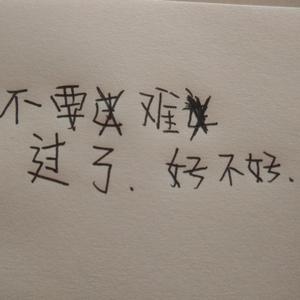 不要难
过了.好不好.